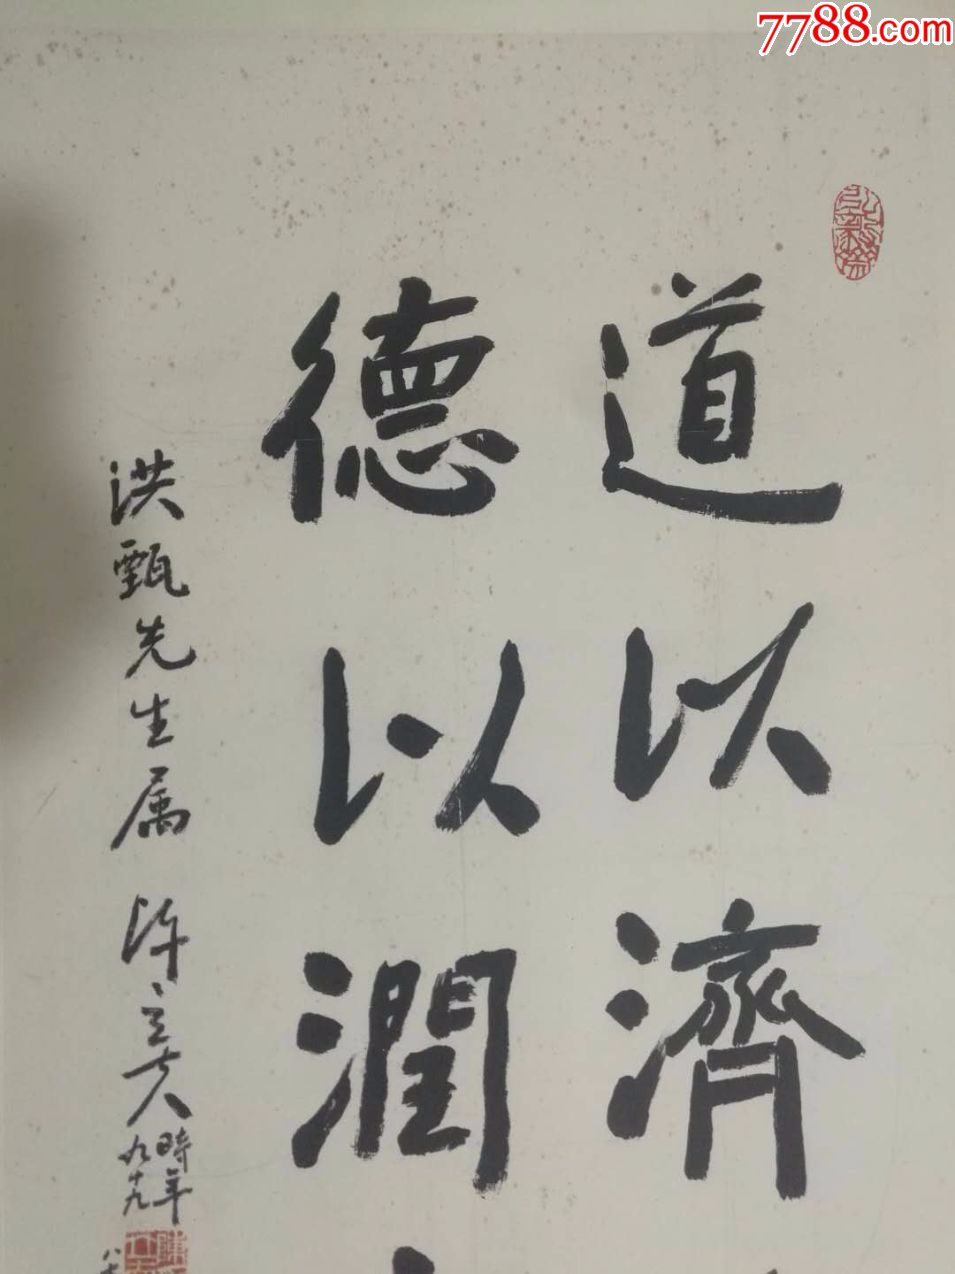 7788.com
道以濟
德以潤
洪甄先生属 陈立夫 時年九十九